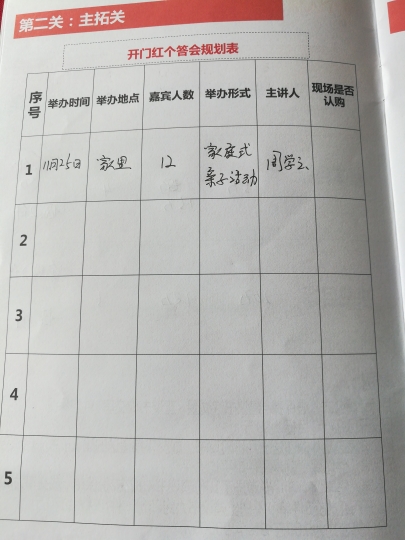 第二关：主拓关
开门红个答会规划表
序号 举办时间 举办地点 嘉宾人数 举办形式 主讲人 现场是否认购
1 11月25日 家里 12 家庭式亲子活动
2
3
4
5